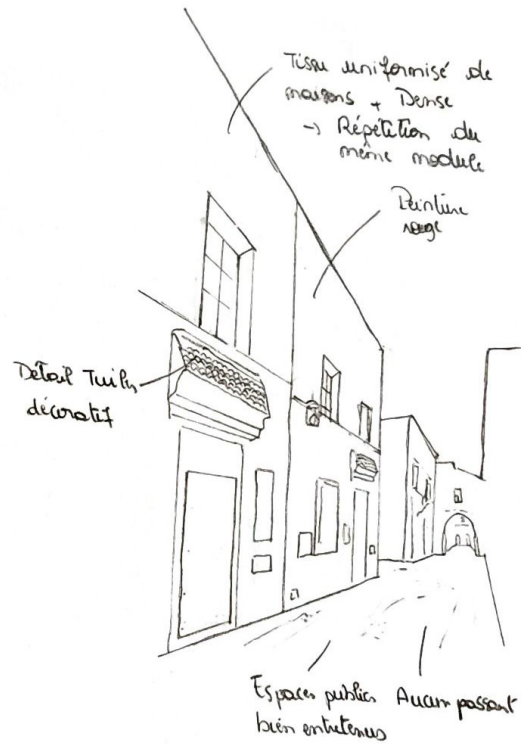 Tissu uniformisé de
maisons + Dense
→ Répétition du
même module
Peinture
rouge
Détail Tuiles
décoratif
Espaces publics
bien entretenus
Aucun passant